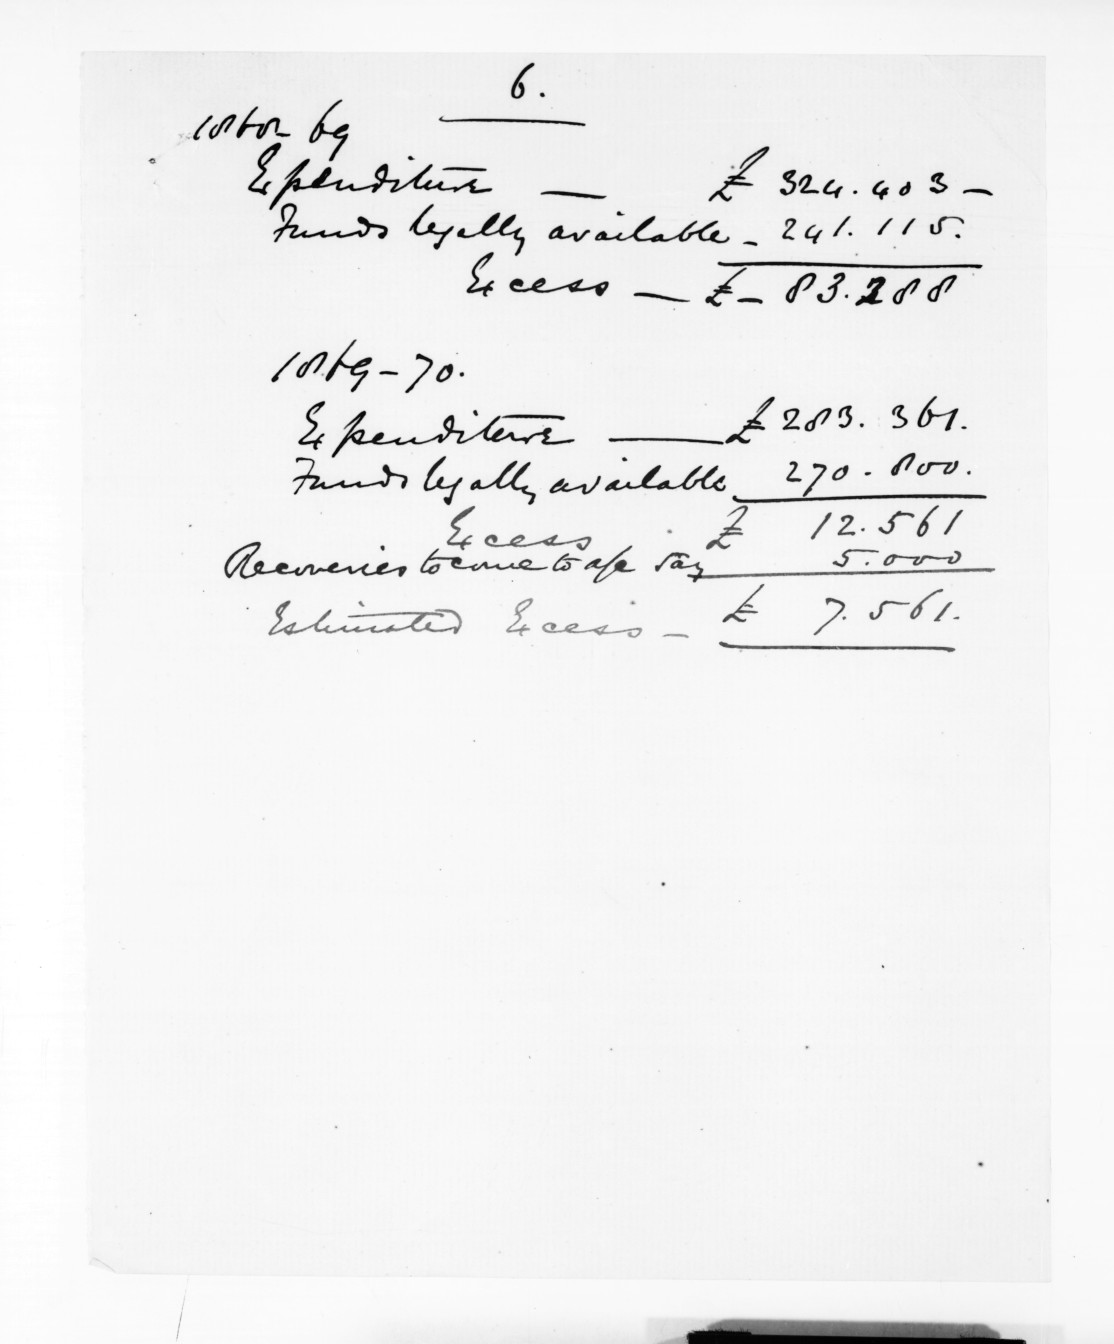 6.
1868 69
Expenditure — £ 324.403 —
Funds legally available - 241.115.
Excess — £ - 83.288
1869 - 70.
Expenditure — £ 283. 361.
Funds legally available 270. 800.
Excess £ 12.561
Recoveries to come to a/c say 5.000
Estimated Excess - £ 7.561.